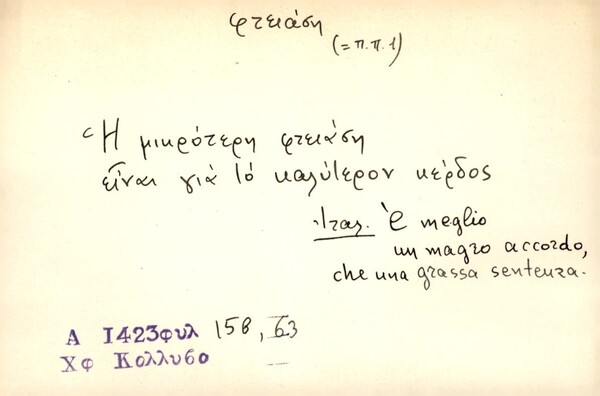 φτειάση
(= π.π. 1)
Ἡ μικρότερη φτειάση
εἶναι γιὰ τὸ καλύτερον κέρδος
Ἰταλ. È meglio
un magro accordo,
che una grassa sentenza.
Α 1423φυλ 158, 63
Χφ Κολλυβο